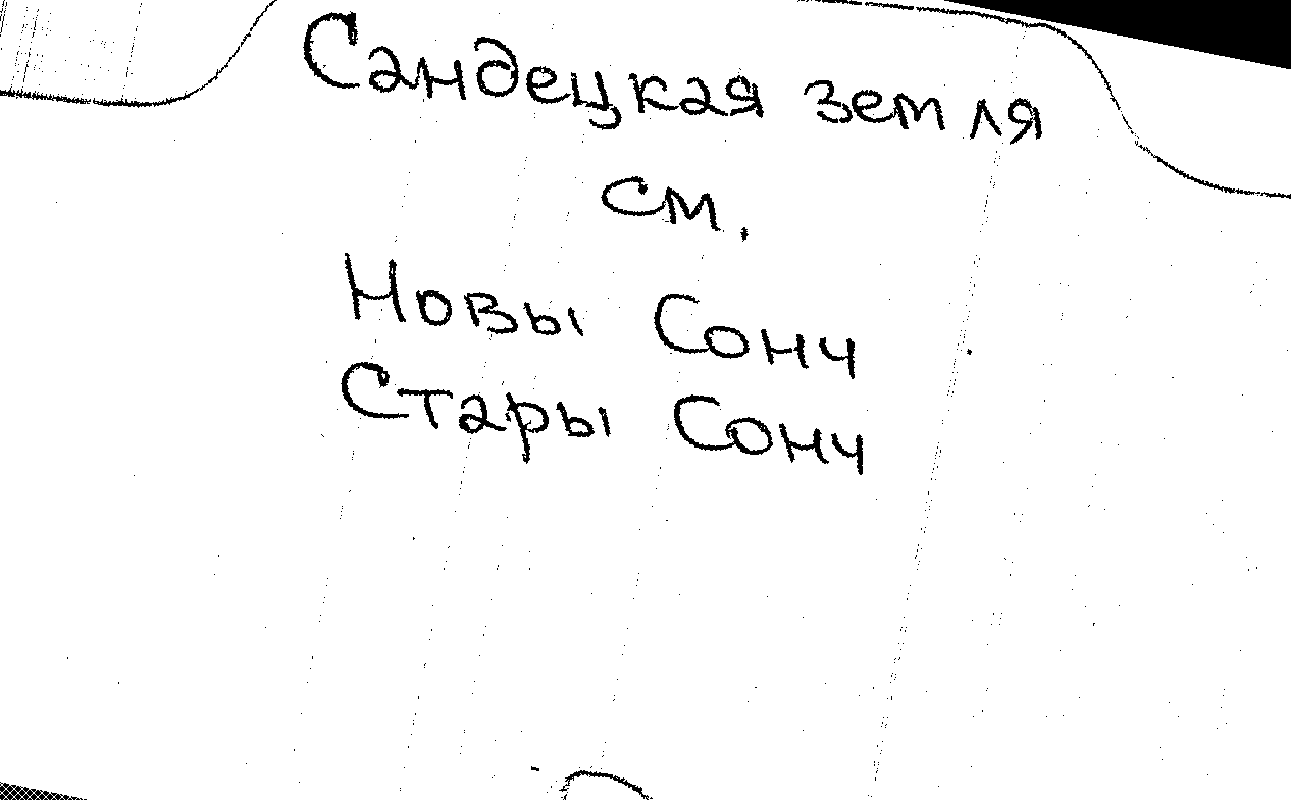 Сандецкая земля
см.
Новы Сонч
Стары Сонч